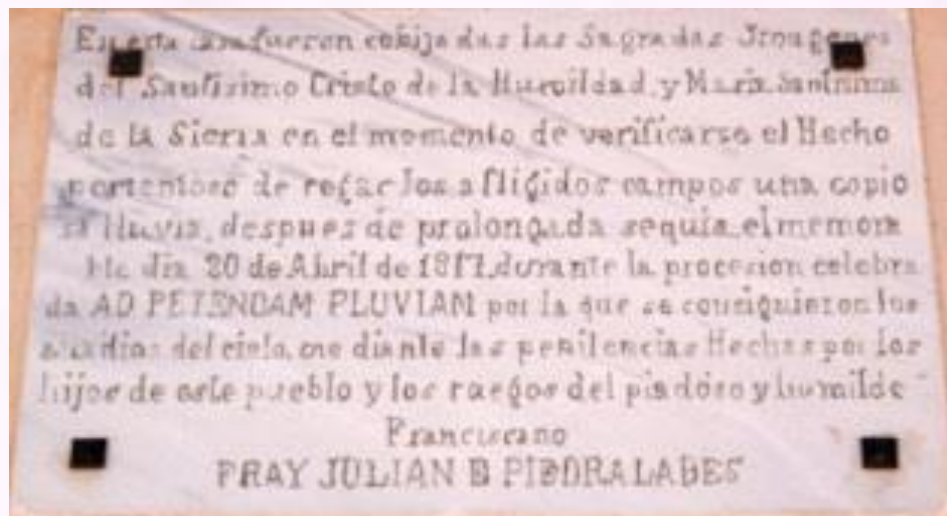 En esta casa fueron cobijadas las Sagradas Imagenes
del Santisimo Cristo de la Humildad, y Maria Santisima
de la Sierra en el momento de verificarse el Hecho
portentoso de regar los afligidos campos una copio
sa lluvia, despues de prolongada sequia, el memora
ble dia 20 de Abril de 1817, durante la procesion celebra
da AD PETENDAM PLUVIAM por la que se consiguieron los
auxilios del cielo, mediante las penitencias Hechas por los
hijos de este pueblo y los ruegos del piadoso y humilde
Franciscano
FRAY JULIAN B PIEDRALABES